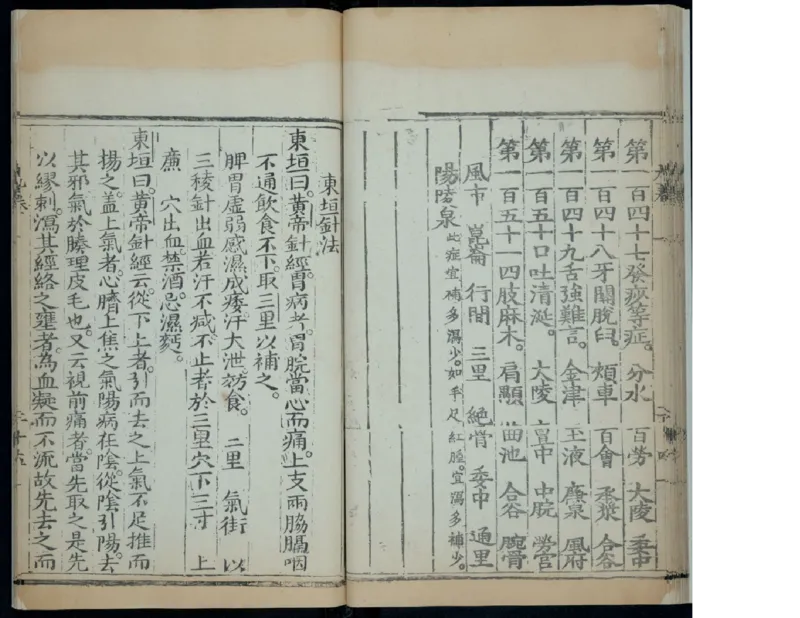 第一百四十七發痧等症。 分水 百勞 大陵 委中
第一百四十八牙關脫臼。 頰車 百會 承漿 合谷
第一百四十九舌強難言。 金津 玉液 廉泉 風府
第一百五十口吐清涎。 大陵 亶中 中脘 勞宮
第一百五十一四肢麻木。 肩顒 曲池 合谷 腕骨
風市 崑崙 行間 三里 絶骨 委中 通里
陽陵泉 此症宜補多瀉少。如手足紅腫。宜瀉多補少。
東垣針法
東垣曰。黃帝針經。胃病者。胃脘當心而痛。上支兩脇膈咽
不通飲食不下。取三里以補之。
脾胃虛弱感濕成痿。汗大泄。妨食。三里 氣街 以
三稜針出血若汗不减不止者於三里穴下三寸 上
廉 穴出血。禁酒。忌濕麪。
東垣曰。黃帝針經云。從下上者。引而去之上氣不足推而
揚之。盖上氣者。心臍上焦之氣陽病在陰。從陰引陽。去
其邪氣於腠理皮毛也。又云視前痛者。當先取之是先
以繆刺。瀉其經絡之壅者。為血凝而不流故先去之而